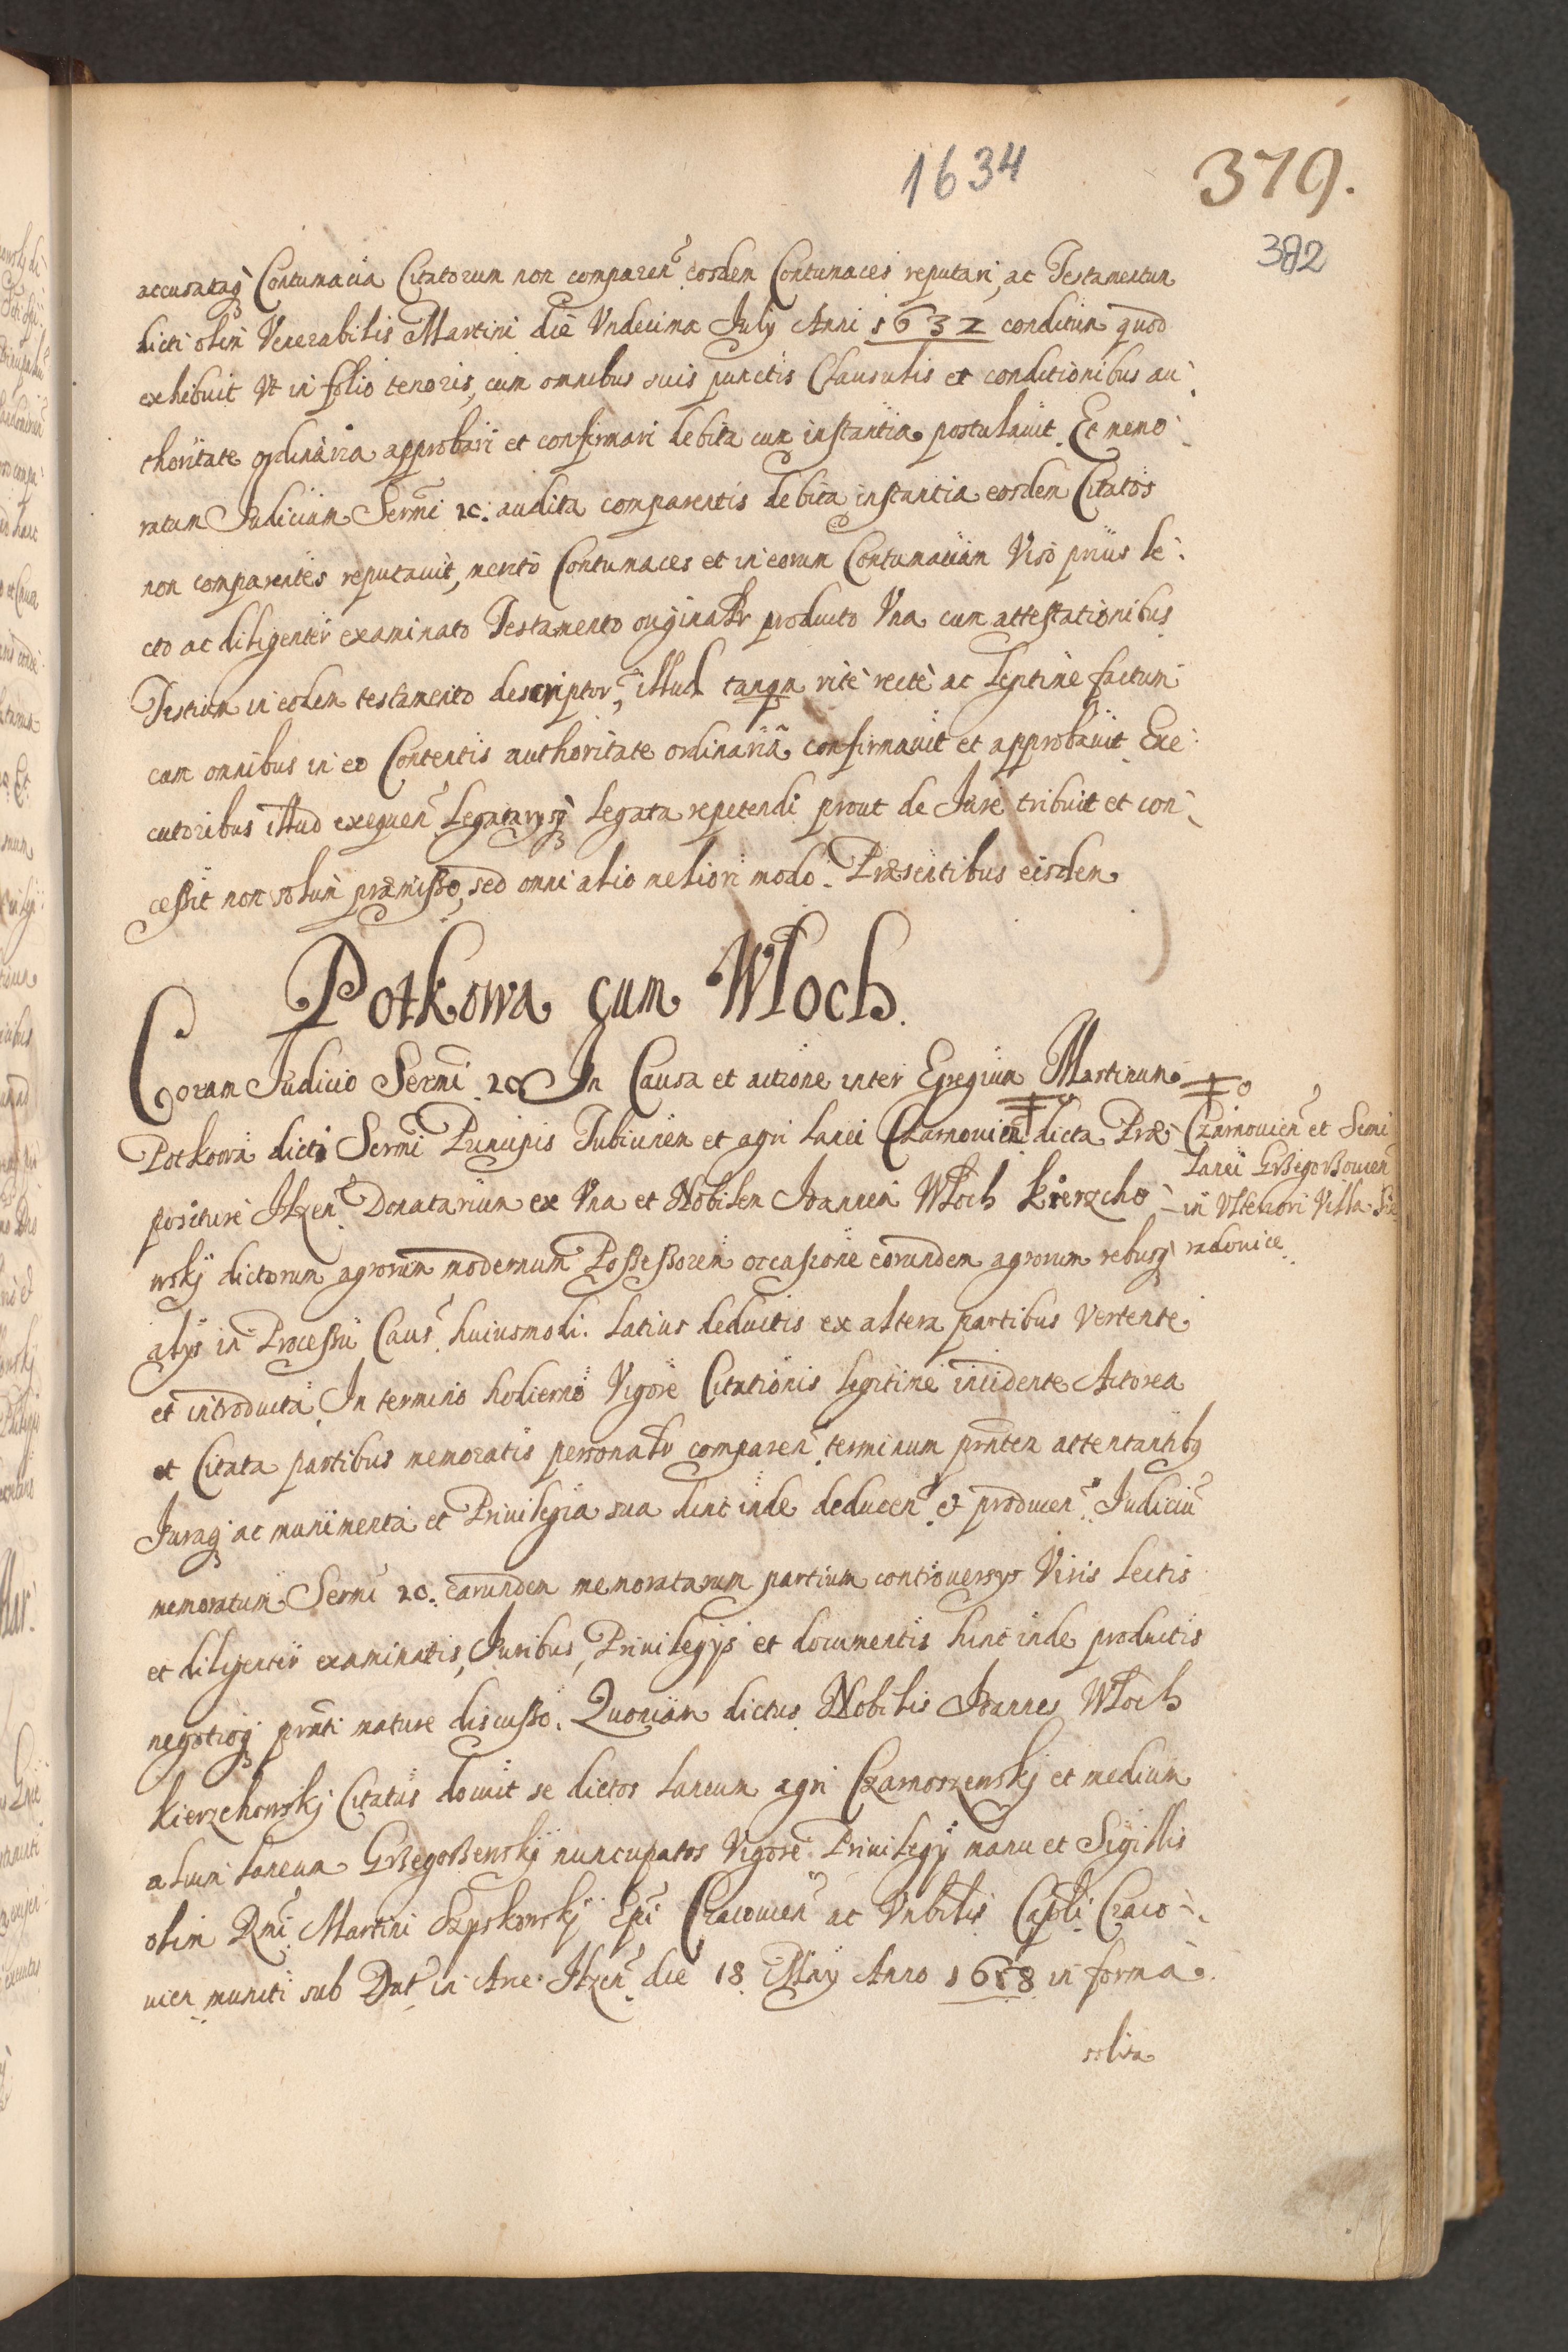 1634
379.
382
accusataq́ Contumacia Citatorum non comparen̄ eosdem Contumaces reputari, ac Testamentum
dicti olim Venerabilis Martini die Vndecima July Anni 1632 conditum quod
exhibuit Vt in folio tenoris, cum omnibus suis punctis Clausulis et conditionibus au
thoritate ordinaria approbari et confirmari debita cum instantia postulauit. Et memo
ratum Judicium Sermi 2c. audita comparentis debita instantia eosdem Citatos
non comparentes reputauit, merito Contumaces et in eorum Contumaciam Viso prius le
cto ac diligenter examinato Testamento originalr producto Vna cum attestationibus
Testium in eodem testamento descriptor, illud tanqm rite recte ac legtime factum
cum omnibus in eo Contentis authoritate ordinaria confirmauit et approbauit Exe
cutoribus illud exequen̄ Legatarysq́ Legata repetendi prout de Jure tribuit et con
cessit non solum præmisso, sed omni alio meliori modo. Præsentibus eisdem
Potkowa cum Wloch.
Coram Judicio Sermi 2c In Causa et actione inter Egregium Martinum
Potkowa dicti Sermi Principis Tubicinem et agri Lanei Czarnouien̄ dicta Præ
positure Ilzen̄ Donatarium ex Vna et Nobilem Joannem Wloch Kierzcho
wskj dictorum agrorum modernum Possessorem occasione eorundem agrorum rebusq́
alys in Processu Caus̄ huiusmodi latius deductis ex altera partibus vertente
et introducta. In termino hodierno Vigore Citationis legitime incidente Actorea
et Citata partibus memoratis personalr comparen̄ terminum prntem attentantibq
Juraq́ ac munimenta et Priuilegia sua hinc inde deducen̄ & producen̄ Judiciū
memoratum Sermi 2c. earundem memoratarum partium controuersys Visis Lectis
et diligenter examinatis, Juribus, Priuilegys et documentis hinc inde productis
negotioq́ prnti mature discusso. Quoniam dictus Nobilis Joannes Wloch
Kierzchowskj Citatus docuit se dictos Laneum agri Czarnoszewskj et medium
alium Laneum Grzegorzewskj nuncupatos Vigore Priuilegy manu et Sigillis
olim Rmi Martini Szyszkowskj Epi Cracouien̄ ac Vnblis Capli Craco
uien muniti sub Dat in Arce Ilzen̄ die 18 May Anno 1618 in forma
solita
Czarnouien̄ et Semi
Lanei Grzegorzouien
in Vlteriori Villa Sie
radowice